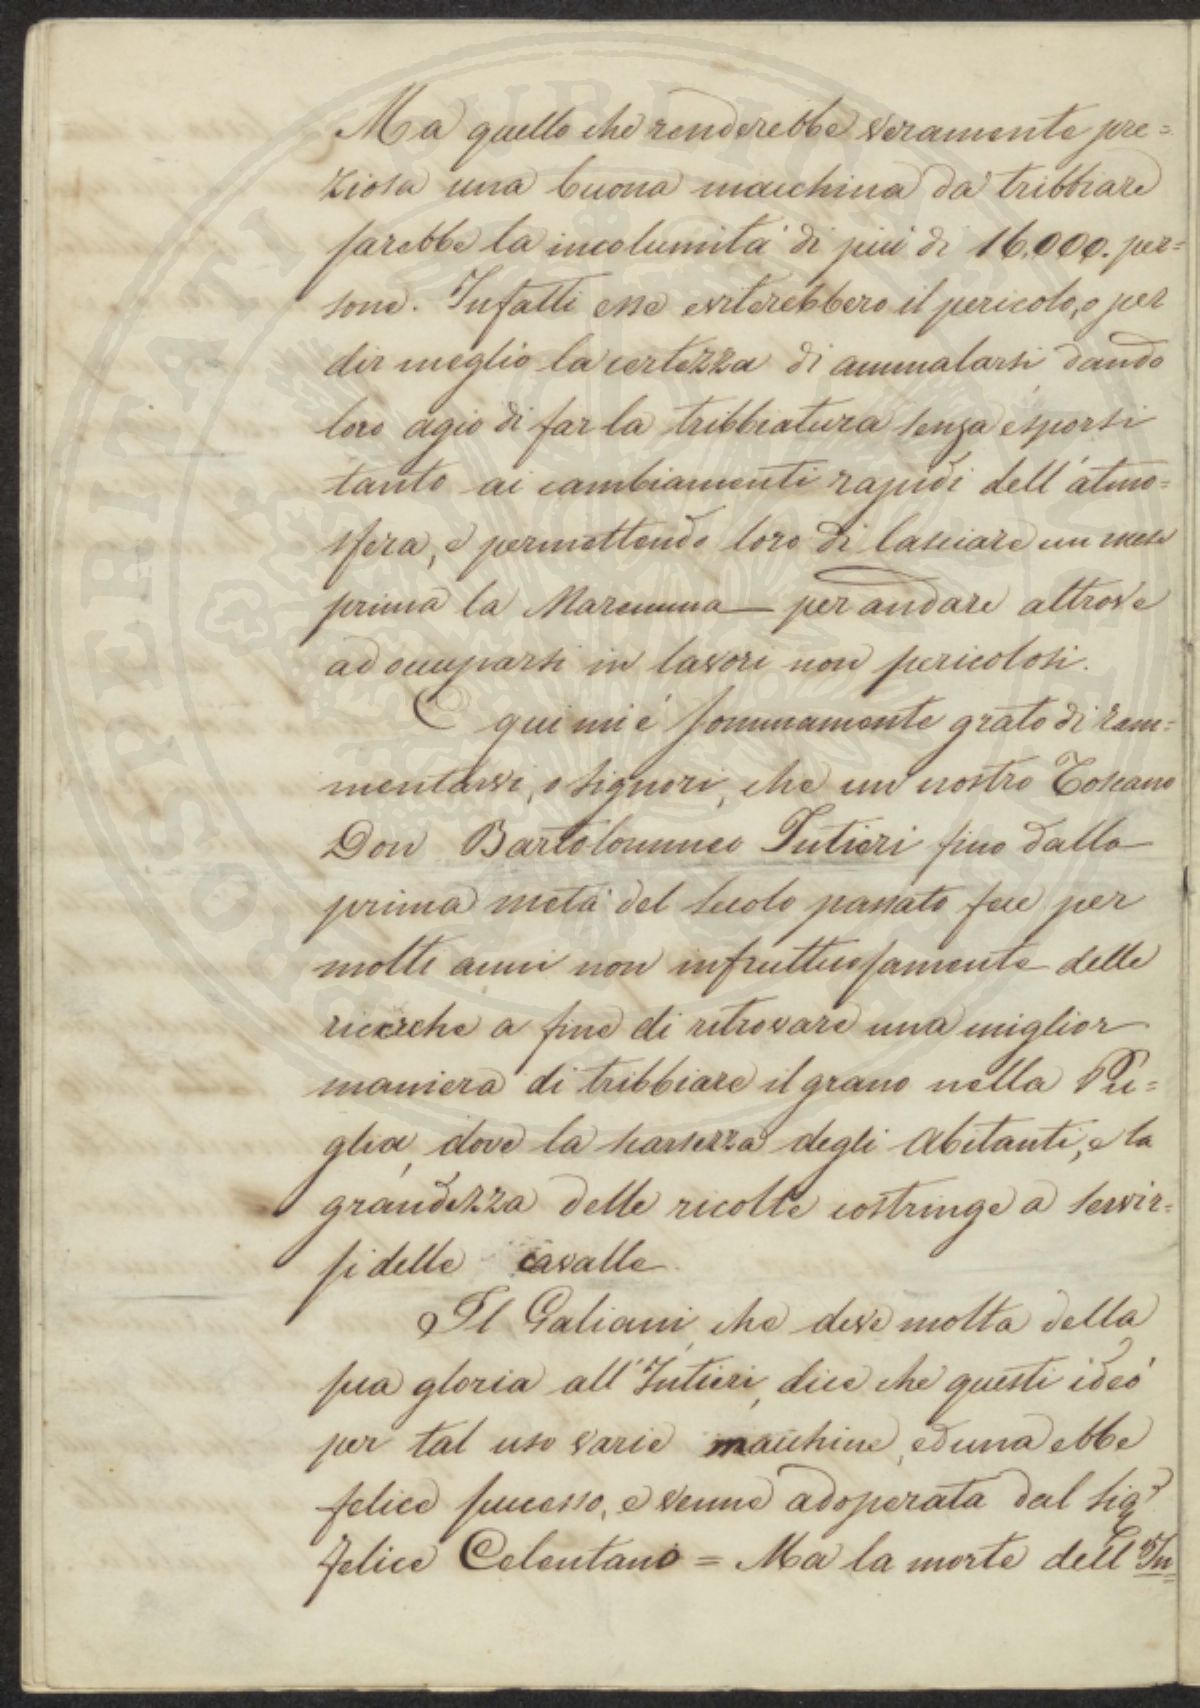 Ma quello che renderebbe veramente pre=
ziosa una buona macchina da tribbiare
sarebbe la incolumità di più di 16.000. per=
sone. Infatti esse eviterebbero il pericolo, o per
dir meglio la certezza di ammalarsi dando
loro agio di far la tribbiatura senza esporsi
tanto ai cambiamenti rapidi dell'atmo=
sfera, e permettendo loro di lasciare un mese
prima la Maremma per andare altrove
ad occuparsi in lavori non pericolosi.
E qui mi è sommamente grato di ram=
mentarvi, o Signori, che un nostro Toscano
Don Bartolommeo Intieri fino dalla
prima metà del secolo passato fece per
molti anni non infruttuosamente delle
ricerche a fine di ritrovare una miglior
maniera di tribbiare il grano nella Pu=
glia, dove la scarsezza degli Abitanti, e la
grandezza delle ricolte costringe a servir=
si delle cavalle.
Il Galiani, che deve molta della
sua gloria all'Intieri, dice che questi ideò
per tal uso varie macchine, ed una ebbe
felice successo, e venne adoperata dal Sig.r
Felice Celentano = Ma la morte dell'In=
PROSPERITATI PUBLICAE